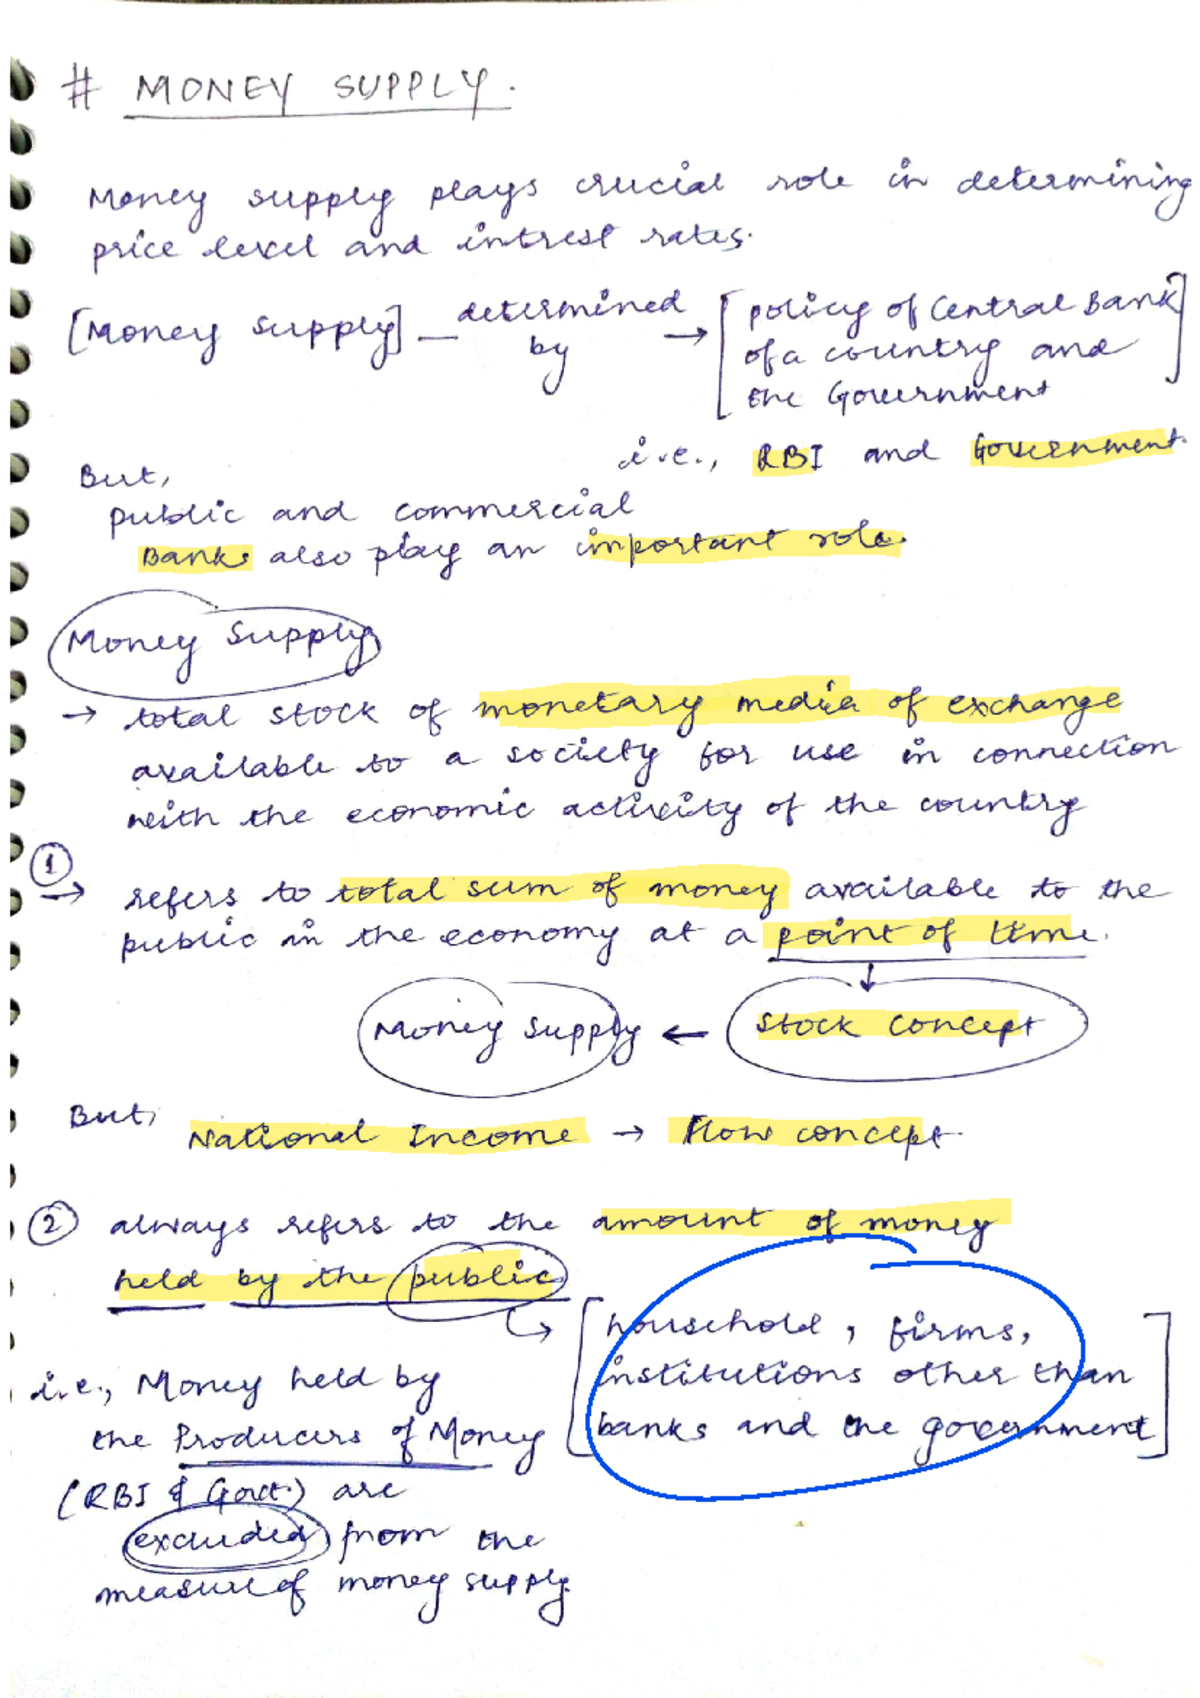 # MONEY SUPPLY.
Money supply plays crucial role in determining
price level and intrest rates.
[Money Supply] — determined by → [policy of Central Bank
of a country and
the Government]
i.e., RBI and Government.
But,
public and commercial
Banks also play an important role.
Money Supply
→ total stock of monetary media of exchange
available to a society for use in connection
with the economic activity of the country
① → refers to total sum of money available to the
public in the economy at a point of time.
↓
Money Supply ← Stock Concept
But, National Income → Flow concept.
② always refers to the amount of money
held by the public
↪ [household, firms,
institutions other than
banks and the government]
i.e., Money held by
the Producers of Money
(RBI & Govt.) are
excluded from the
measure of money supply